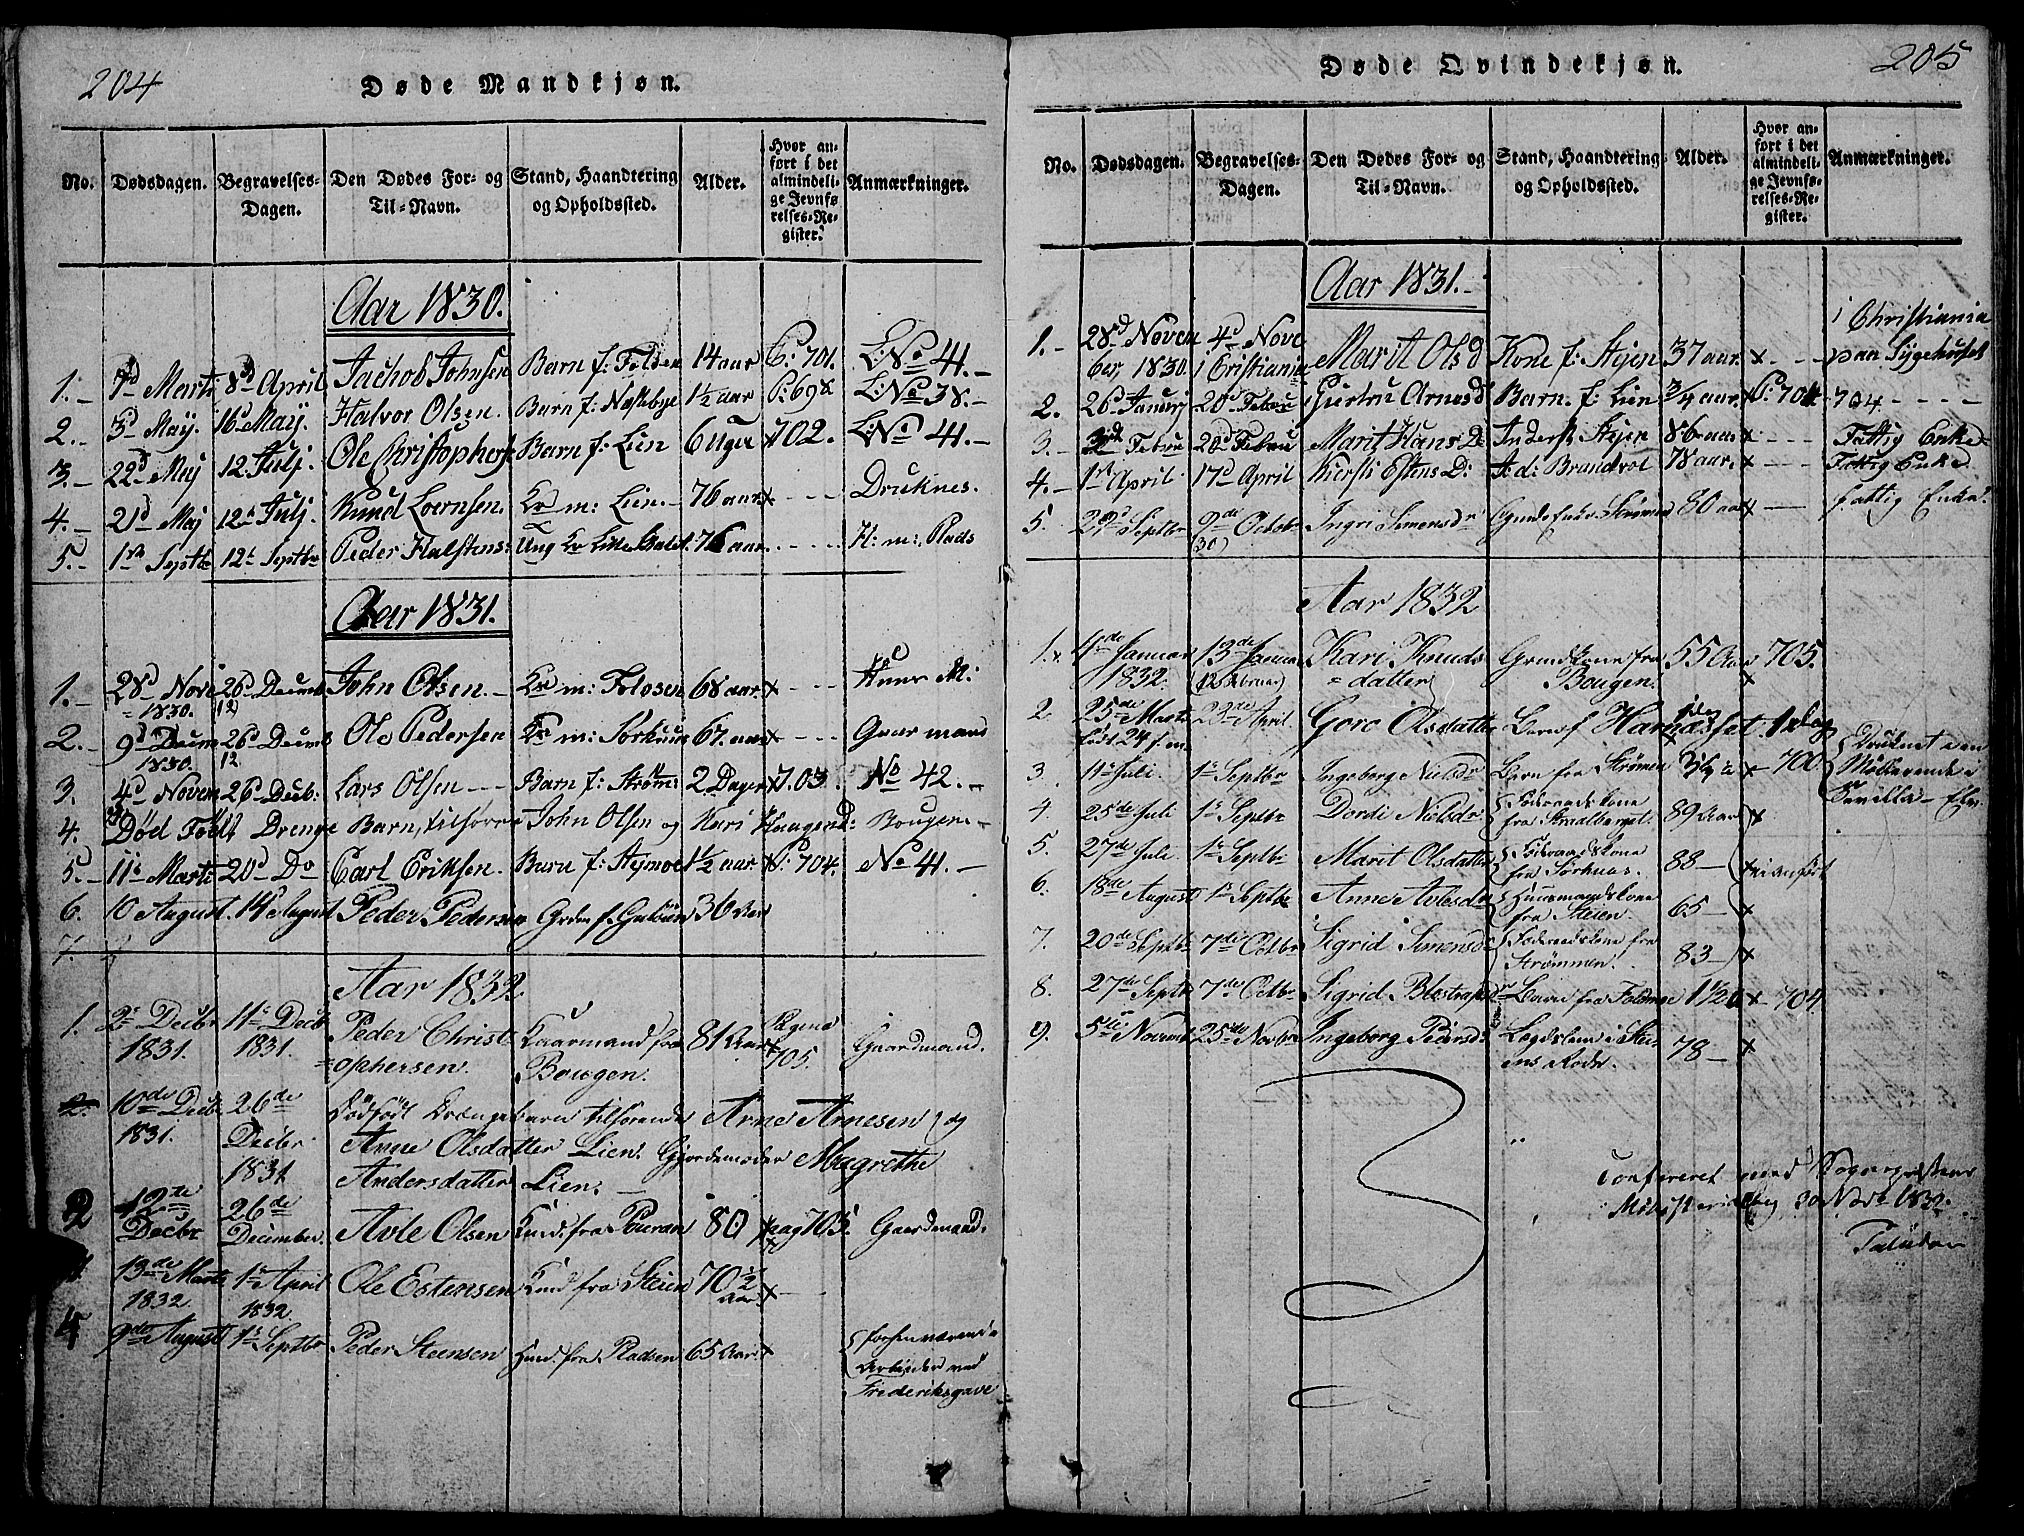 204
Døde Mandkjøn.
No. Dødsdagen. Begravelses-Dagen. Den Dødes For- og Til-Navn. Stand, Haandtering og Opholdssted. Alder. Hvor anført i det almindelige Jevnførelses-Register. Anmærkninger.
Aar 1830.
1. 7d Marti 8d April Jachob Johnsen Barn f: Folden 14 aar P: 701. L: No 41.
2. 3d Maij. 16 Maij. Halvor Olsen. Barn f: 1½ aar P: 698 L: No 38.
3. 22d Maj 12 Julj. Ole Christophers. Barn f: Lien 6 Uger 702. L: No 41.
4. 21d Maj 12 Julj. Knud Loernsen. m: Lien 76 aar x Druknes.
5. 1ste Septbr 12te Septbr Peder Halstens: 76 aar H: m: Plads
Aar 1831.
1. 28d Nov 1830. 26d Decemb 12 John Olsen. m: Folosen 68 aar x Huus M:
2. 9d Decem 1830. 26d Decemb 12 Ole Pedersen m: 67 aar x Gaar mand
3. 4d Novem 26d Decb: Lars Olsen Barn f: Strøm: 2 Dager 703. No 42.
4. Død Født Drenge Barn, tilhører John Olsen og Kari Haugen D: Bougen
5. 11te Marti 20d Do Carl Eriksen. Barn f: 1½ aar P: 704. No 41.
6. 10 August. 14d August Peder Pedersen 36 Aar
7.
Aar 1832
1. 2den Decbr 1831. 11te Decbr 1831. Peder Christ=ophersen. Kaarmand fra Bougen. 81 Aar Pagina 705. Gaardmand.
2. 10de Decbr 1831. 26de Decbr 1831 Dødfødt Drængebarn tilhørende Arne Arnesen og
Anne Olsdatter Lien. Gjordemoder Magrethe
Andersdatter Lien.
2 12te Decbr 26de December. Avle Olsen fra 80 pag 705. Gaardmand.
13de Marts 1832. 1ste April 1832. Ole Estensen fra Steien 70½ Aar x
4 9de August 1ste Septbr Peder Steensen Huusmd. fra Pladsen 65 Aar x forhenværende Arbeider ved Frederiksgave
205
Døde Qvindekjøn.
No. Dødsdagen. Begravelses-Dagen. Den Dødes For- og Til-Navn. Stand, Haandtering og Opholdssted. Alder. Hvor anført i det almindelige Jevnførelses-Register. Anmærkninger.
Aar 1831.
1. 28d November, 1830. 4d Nove i Cristiania Marit Olsd Kone f: Stejen 37 aar. x i Christiania paa Sygehuset
2. 26d Januarj 20d Febru Giertru Arnesd Barn. f: Lien ¾ aar. P: 704 704
3. Febru 20d Febru Marit Hans D. Stejen 86 aar x Fattig Enke
4. 1ste April 17d April Kiersti Estens D: Brandvol 78 aar. x Fattig Enke
5. 29d Septbr 9de Octobr (30) Ingri Simensdr Strømen 80 aar x fattig Enke.
Aar 1832
1. 4de Januar 1832. 13de Januar (12 Februar) Kari Knuds=datter Grundkone fra Bougen. 55 Aar 705. x
2. 25de Marts født 24 f. m. 23de April. Goro Olsdatter Barn af Hamasset. 1 dag
3. 11te Juli. 1ste Septbr Ingeborg Nielsdr Barn fra Strømen x 700. Druknet i en Møllerende i
4. 25de Juli 1ste Septbr Dordi Nielsdr Føderaadskone fra Straalberget. 89 Aar x
5. 27de Juli. 1ste Septbr Marit Olsdatter Føderaadskone fra Sørhuus. 88 x ei anført
6. 18de August 1ste Septbr Anne Avlesdr Huusmandskone fra Steien. 65 x
7. 20de Septbr 7de Octbr Sigrid Simensdr Føderaadskone fra Strømmen. 83 x
8. 27de Septbr 7de Octbr Sigrid Barn fra 1½ x 704
9. 5te Novemb 25de Novbr Ingeborg Pedersdr Lægdslem i Steiens Rode. 78 x
Confereret med Sognepræstens
Ministerialbog 30 Novbr 1832.